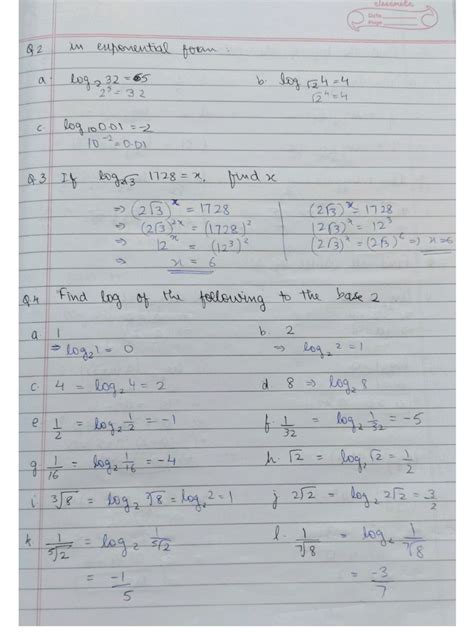 classmate
Date
Page
Q2 in exponential form :
a. log₂32 = 5 b. log√2 4 = 4
2⁵ = 32 √2⁴ = 4
c. log₁₀0.01 = -2
10⁻² = 0.01
Q.3 If log₂√3 1728 = x, find x
⇒ (2√3)ˣ = 1728 (2√3)ˣ = 1728
⇒ (2√3)²ˣ = (1728)² (2√3)ˣ = 12³
⇒ 12ˣ = (12³)² (2√3)ˣ = (2√3)⁶ ⇒ x=6
x = 6
Q4 Find log of the following to the base 2
a 1 b. 2
⇒ log₂1 = 0 ⇒ log₂2 = 1
c. 4 = log₂4 = 2 d 8 ⇒ log₂8
e 1/2 = log₂1/2 = -1 f. 1/32 = log₂1/32 = -5
g 1/16 = log₂1/16 = -4 h. √2 = log₂√2 = 1/2
i ³√8 = log₂³√8 = log₂2 = 1 j 2√2 = log₂2√2 = 3/2
k 1/⁵√2 = log₂ 1/⁵√2 l. 1/⁷√8 = log₂ 1/⁷√8
= -1/5 = -3/7